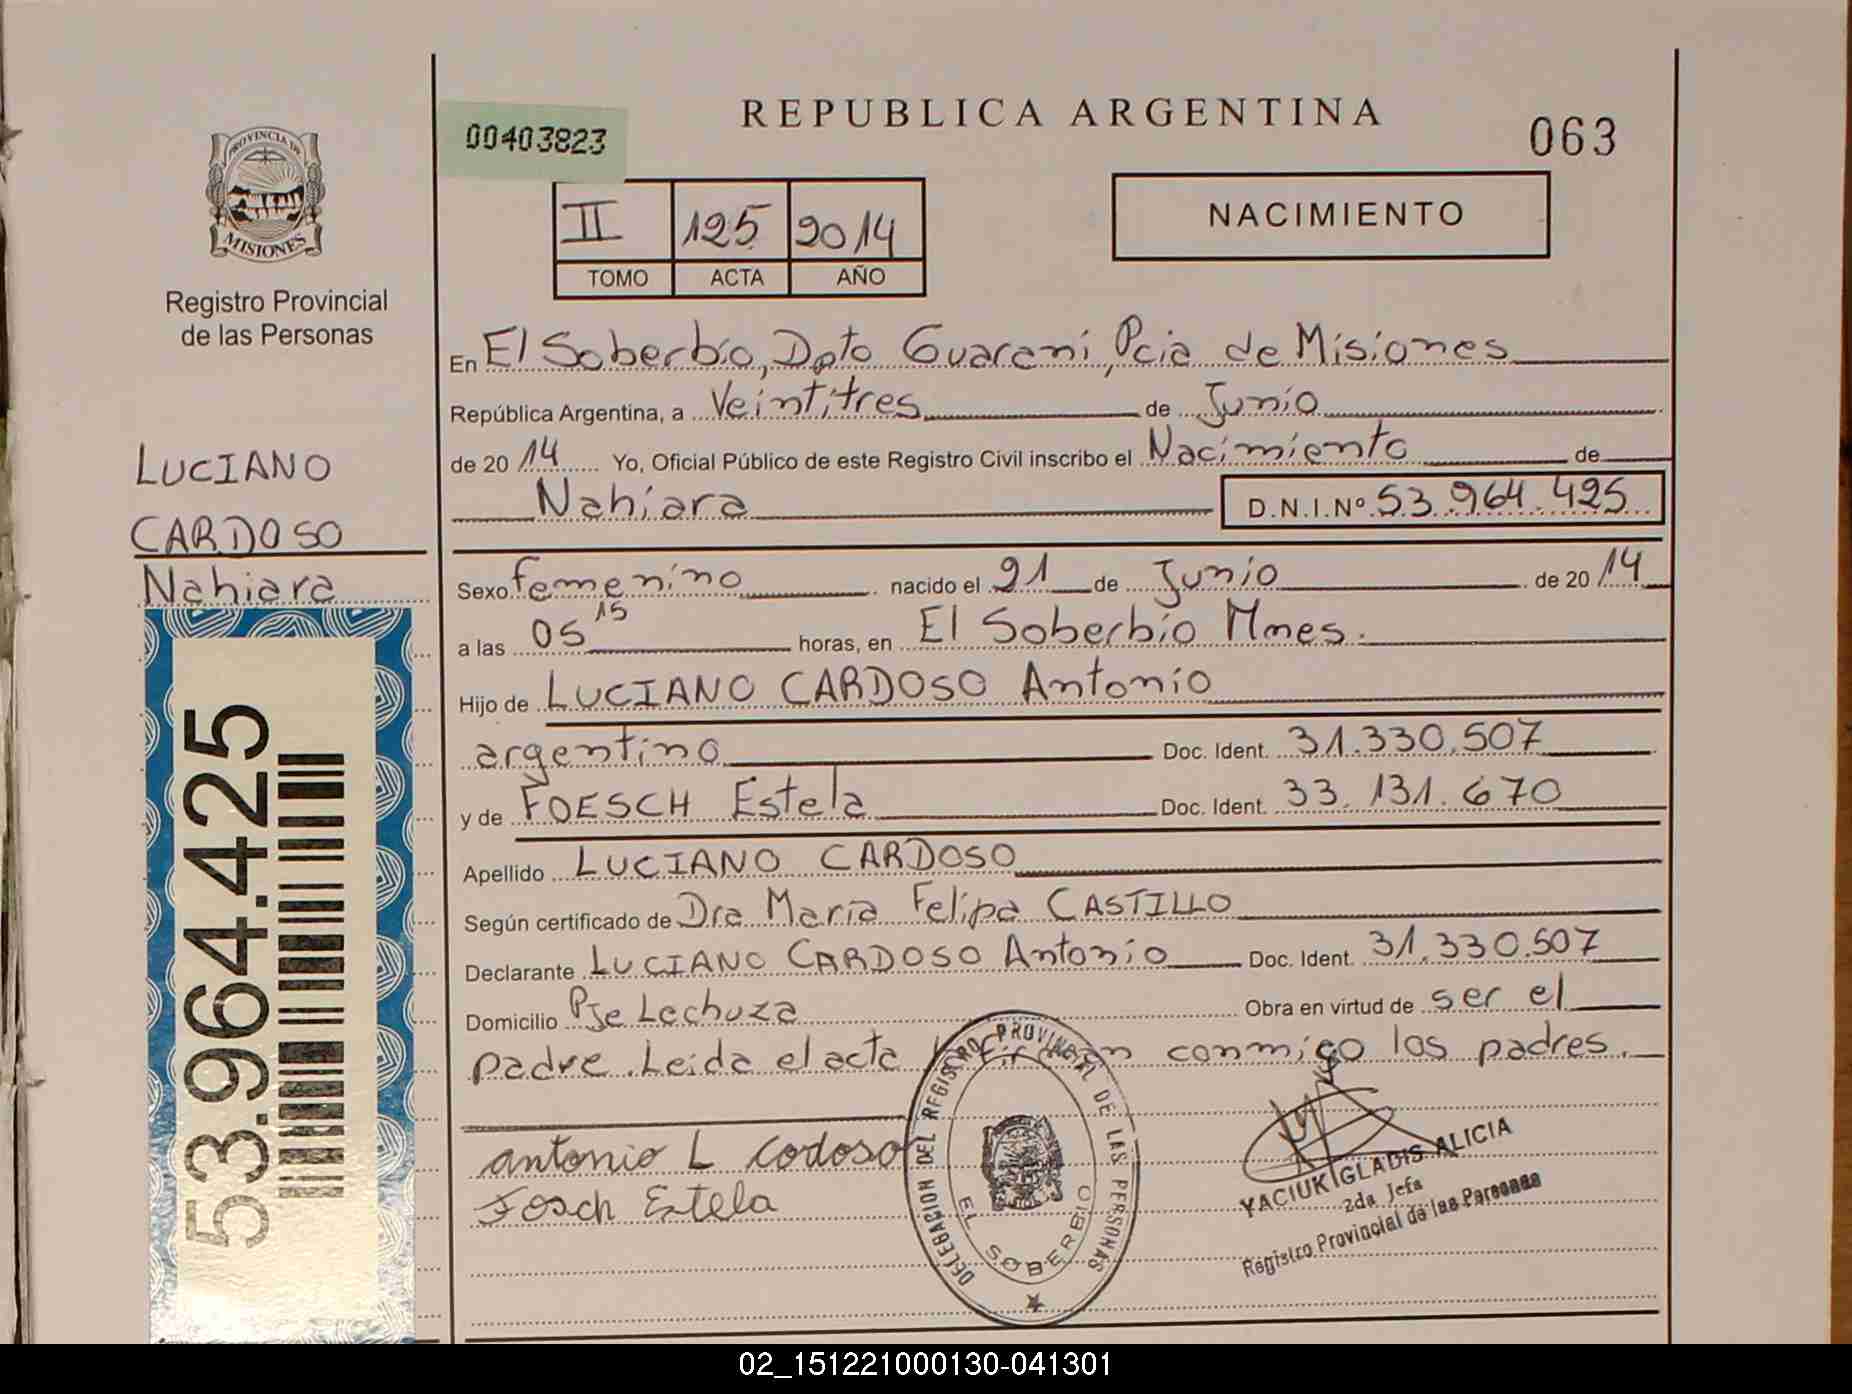 REPUBLICA ARGENTINA
00403823
063
PROVINCIA DE
MISIONES
Registro Provincial
de las Personas
II 125 2014
TOMO ACTA AÑO
NACIMIENTO
En El Soberbio, Dpto Guarani, Pcia de Misiones
República Argentina, a Veintitres de Junio
de 2014 Yo, Oficial Público de este Registro Civil inscribo el Nacimiento de
Nahiara D.N.I.Nº 53.964.425
LUCIANO
CARDOSO
Nahiara
53.964.425
Sexo femenino nacido el 21 de Junio de 2014
a las 05 15 horas, en El Soberbio Mnes.
Hijo de LUCIANO CARDOSO Antonio
argentino Doc. Ident. 31.330.507
y de FOESCH Estela Doc. Ident. 33.131.670
Apellido LUCIANO CARDOSO
Según certificado de Dra Maria Felipa CASTILLO
Declarante LUCIANO CARDOSO Antonio Doc. Ident. 31.330.507
Domicilio Pje Lechuza Obra en virtud de ser el
padre. Leida el acta la firman conmigo los padres.
antonio L Codoso
Fosch Estela
DELEGACION DEL REGISTRO PROVINCIAL DE LAS PERSONAS
EL SOBERBIO
YACIUK GLADIS ALICIA
2da Jefa
Registro Provincial de las Personas
02_151221000130-041301